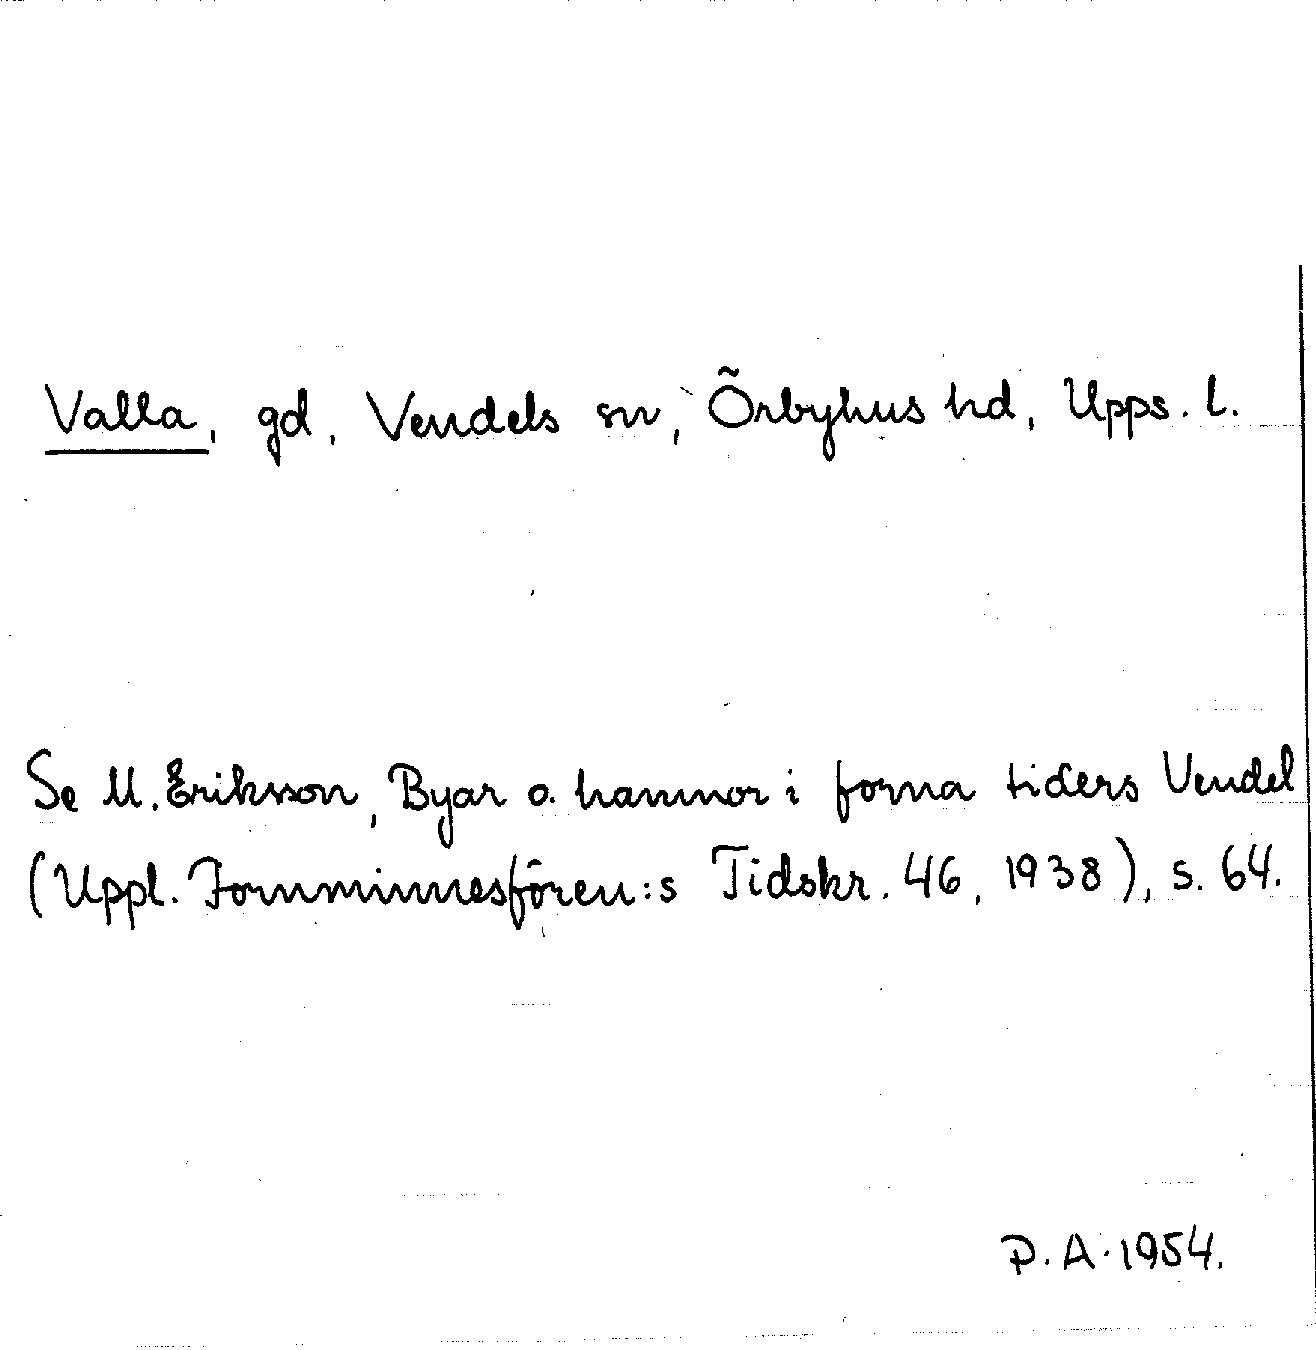 Valla, gd, Vendels sn, Örbyhus hd, Upps. l.
Se M. Eriksson, Byar o. hamnor i forna tiders Vendel
(Uppl. Fornminnesfören:s Tidskr. 46, 1938), s. 64.
P.A. 1954.